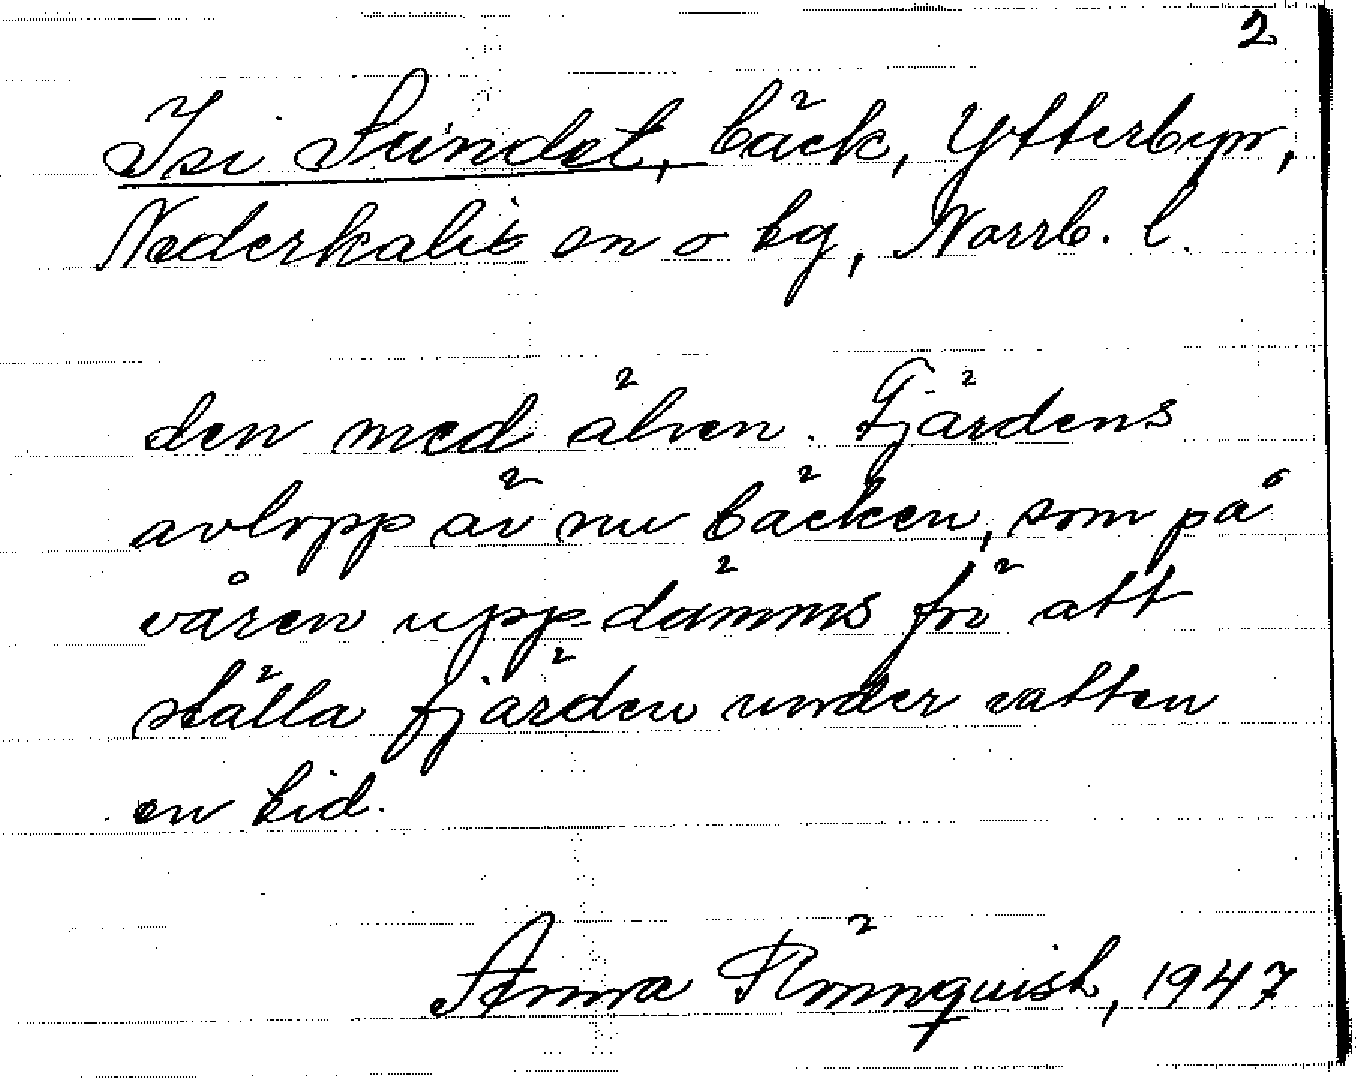 2
Isi Sundet, bäck, Ytterbyn,
Nederkalix sn o tg, Norrb. l.
den med älven. Fjärdens
avlopp är nu bäcken, som på
våren uppdämms för att
ställa fjärden under vatten
en tid.
Anna Rönnquist, 1947